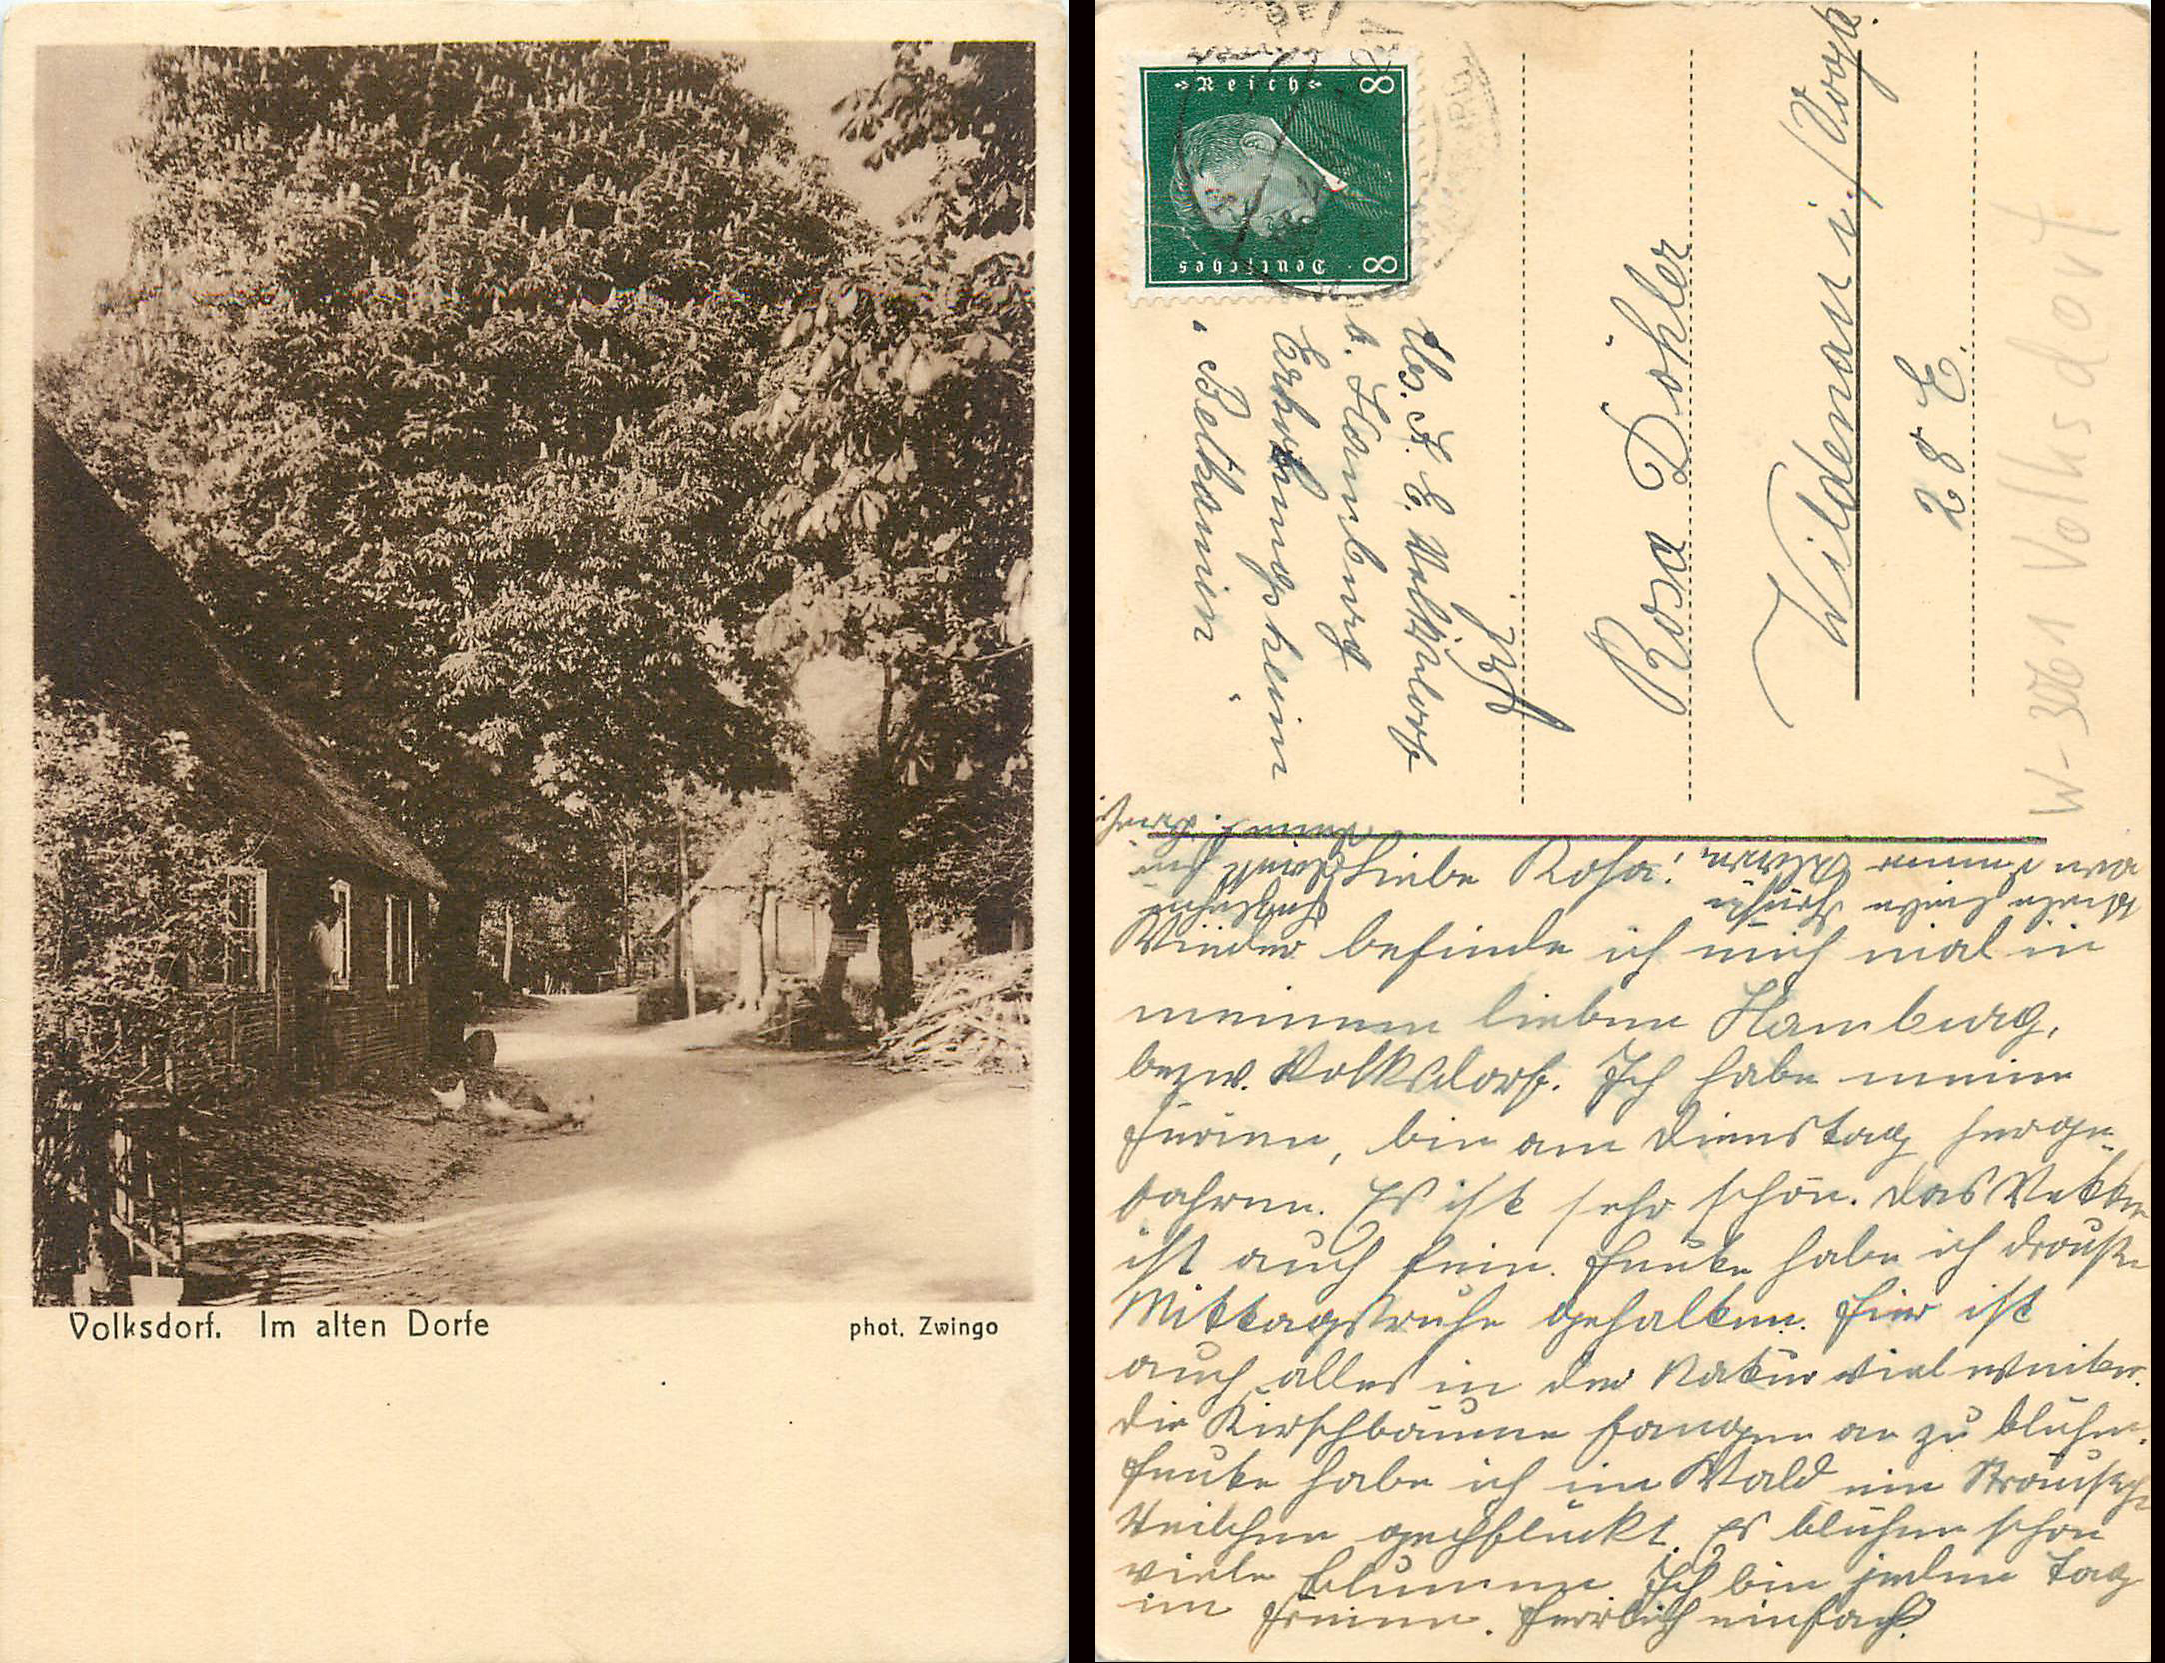 Volksdorf. Im alten Dorfe
phot. Zwingo
Deutsches Reich
8 8
Abs. J. E. Volksdorf
b. Hamburg
Erholungsheim
"Betkamin"
Rosa Döhler
Wildenau i./Vogtl.
28 E.
W-3061 Volksdorf
Liebe Rosa!
Wieder befinde ich mich mal in
meinem lieben Hamburg,
bezw. Volksdorf. Ich habe meine
Ferien, bin am Dienstag herge-
fahren. Es ist sehr schön. Das Wetter
ist auch fein. Heute habe ich draußen
Mittagsruhe gehalten. Hier ist
auch alles in der Natur viel weiter.
Die Kirschbäume fangen an zu blühen.
Heute habe ich im Wald ein Sträußchen
Veilchen gepflückt. Es blühen schon
viele Blumen. Ich bin jeden Tag
im Freien. Herrlich einfach.